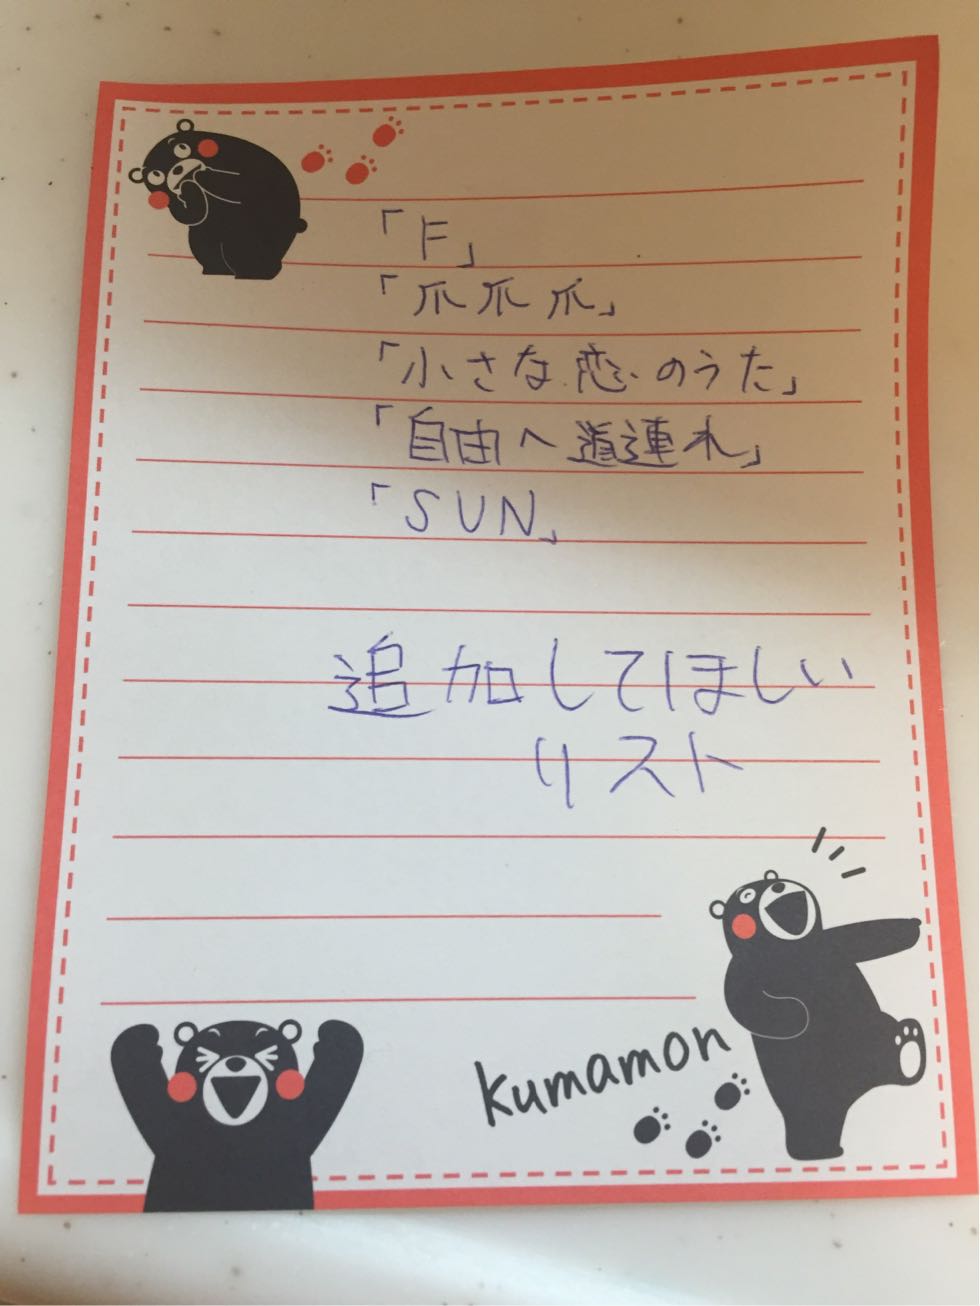 「F」
「爪爪爪」
「小さな恋のうた」
「自由へ道連れ」
「SUN」
追加してほしい
リスト
kumamon